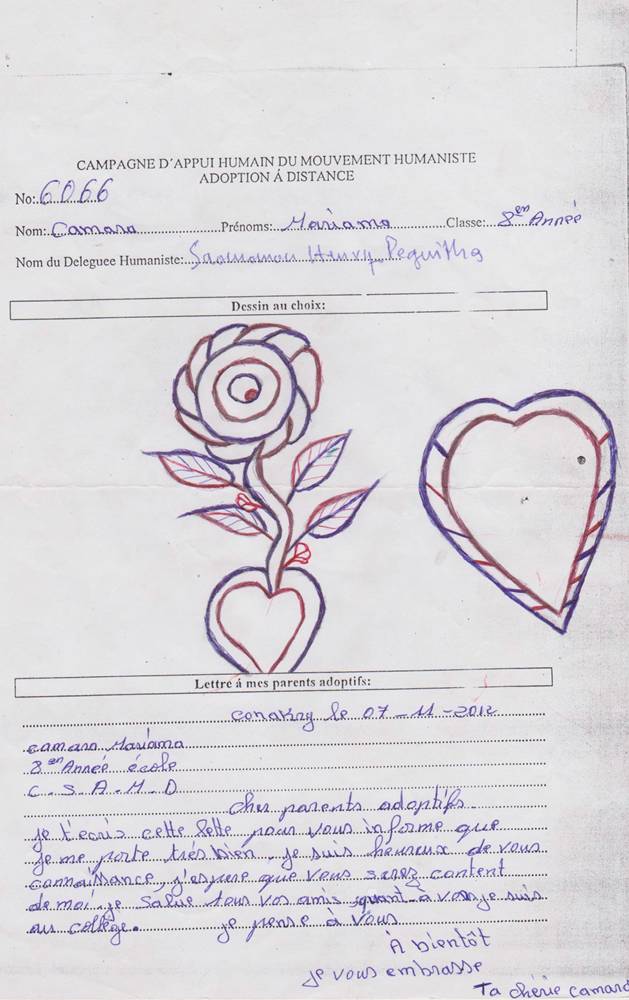 CAMPAGNE D'APPUI HUMAIN DU MOUVEMENT HUMANISTE
ADOPTION Á DISTANCE
No: 6066
Nom: Camara Prénoms: Mariama Classe: 8en Année
Nom du Deleguee Humaniste: Henry
Dessin au choix:
Lettre á mes parents adoptifs:
Conakry le 07-11-2012
camara Mariama
8en Année école
C.S.A.M.D
Cher parents adoptifs
je t'ecris cette lette pour vous informe que
je me porte très bien. je suis heureux de vous
connaissance, j'espere que vous serez content
de moi je salue tous vos amis quant à vous je suis
au collège. je pense à vous
À bientôt
je vous embrasse
Ta chérie camara